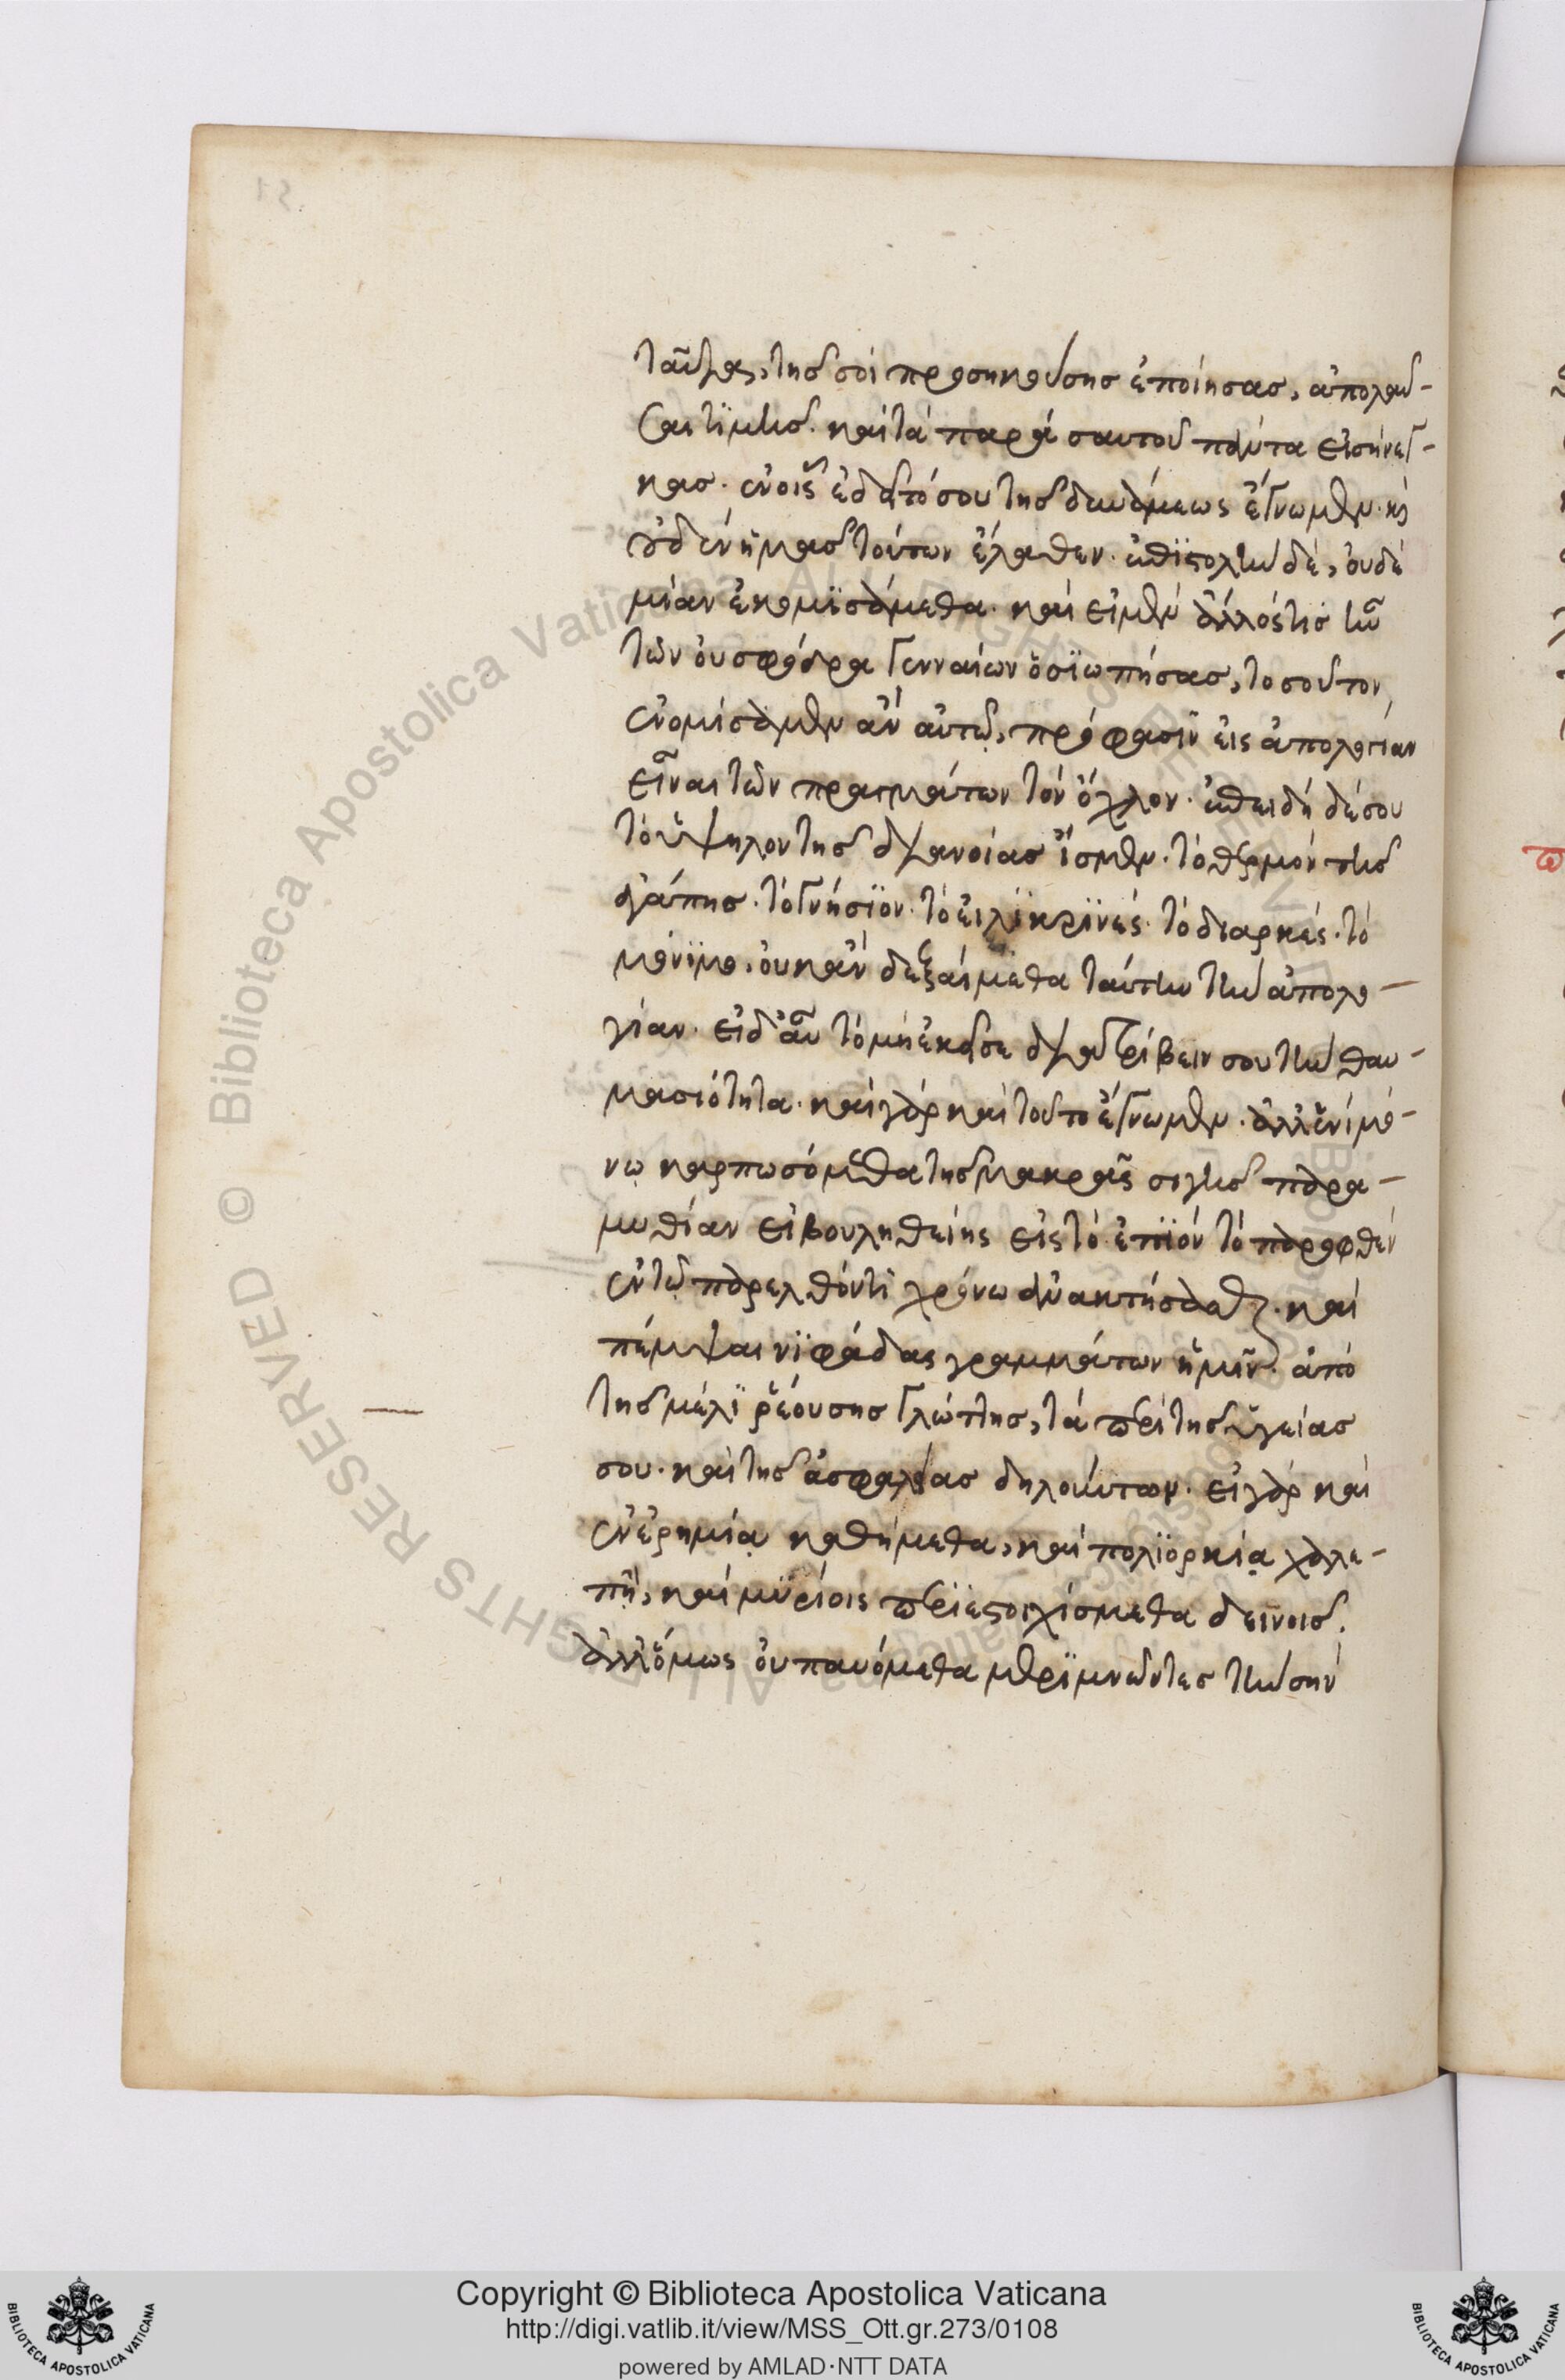 ταῦθα, τῆς σοὶ προσηκούσης ἐποίησας, ἀπολαῦ-
σαι τιμῆς. καὶ τὰ παρὰ σαυτοῦ πάντα εἰσήνεγ-
κας. ἐν οἷς ἐδεῖτό σου τῆς δυνάμεως ἔγνωμεν. καὶ
οὐδὲν ἡμᾶς τούτων ἔλαθεν. ἐπιστολὴν δὲ, οὐδὲ
μίαν ἐκομισάμεθα. καὶ εἰ μὲν ἄλλός τις ἦν
τῶν οὐ σφόδρα γενναίων ὁ σιωπήσας, τοσοῦτον,
ἐνομίσαμεν ἂν αὐτῷ, πρόφασιν εἰς ἀπολογίαν
εἶναι τῶν πραγμάτων τὸν ὄχλον. ἐπειδὴ δέ σου
τὸ ὑψηλὸν τῆς διανοίας ἴσμεν. τὸ θερμὸν τῆς
ἀγάπης. τὸ γνήσιον. τὸ εἰλικρινές. τὸ διαρκές. τὸ
μόνιμο, οὐκ ἂν δεξαίμεθα ταύτην τὴν ἀπολο-
γίαν. εἰ δ' αὖ τὸ μὴ ἐκεῖσε διατρίβειν σου τὴν θαυ-
μασιότητα. καὶ γὰρ καὶ τοῦτο ἔγνωμεν. ἀλλ' ἑνὶ μό-
νῳ καρπωσόμεθα τῆς μακρᾶς σιγῆς παρα-
μυθίαν εἰ βουληθείης εἰς τὸ ἐπιὸν τὸ παροφθὲν
ἐν τῷ παρελθόντι χρόνω ἀνακτήσασθαι. καὶ
πέμψαι νιφάδας γραμμάτων ἡμῖν. ἀπὸ
τῆς μέλι ῥεούσης γλώττης, τὰ περὶ τῆς ὑγείας
σου. καὶ τῆς ἀσφαλείας δηλούντων. εἰ γὰρ καὶ
ἐν ἐρημίᾳ καθήμεθα, καὶ πολιορκίᾳ χαλε-
πῇ, καὶ μυρίοις περιεστοιχίσμεθα δεινοῖς.
ἀλλ' ὅμως οὐ παυόμεθα μεριμνῶντες τὴν σὴν
Copyright © Biblioteca Apostolica Vaticana
http://digi.vatlib.it/view/MSS_Ott.gr.273/0108
powered by AMLAD·NTT DATA